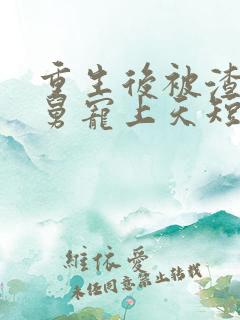 重生後被渣
舅寵上天短
維依愛
未任同意禁止转载